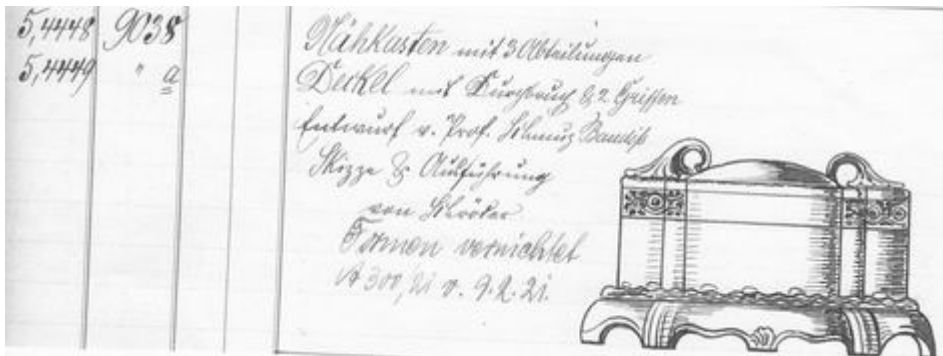 5,4448 9038 Nähkasten mit 3 Abteilungen
5,4449 " a Deckel mit Durchbruch & 2 Griffen
Entwurf v. Prof. Schmuz Baudiß
Skizze & Ausführung
von Schröder
Formen vernichtet
A 300/21 v. 9.2.21.